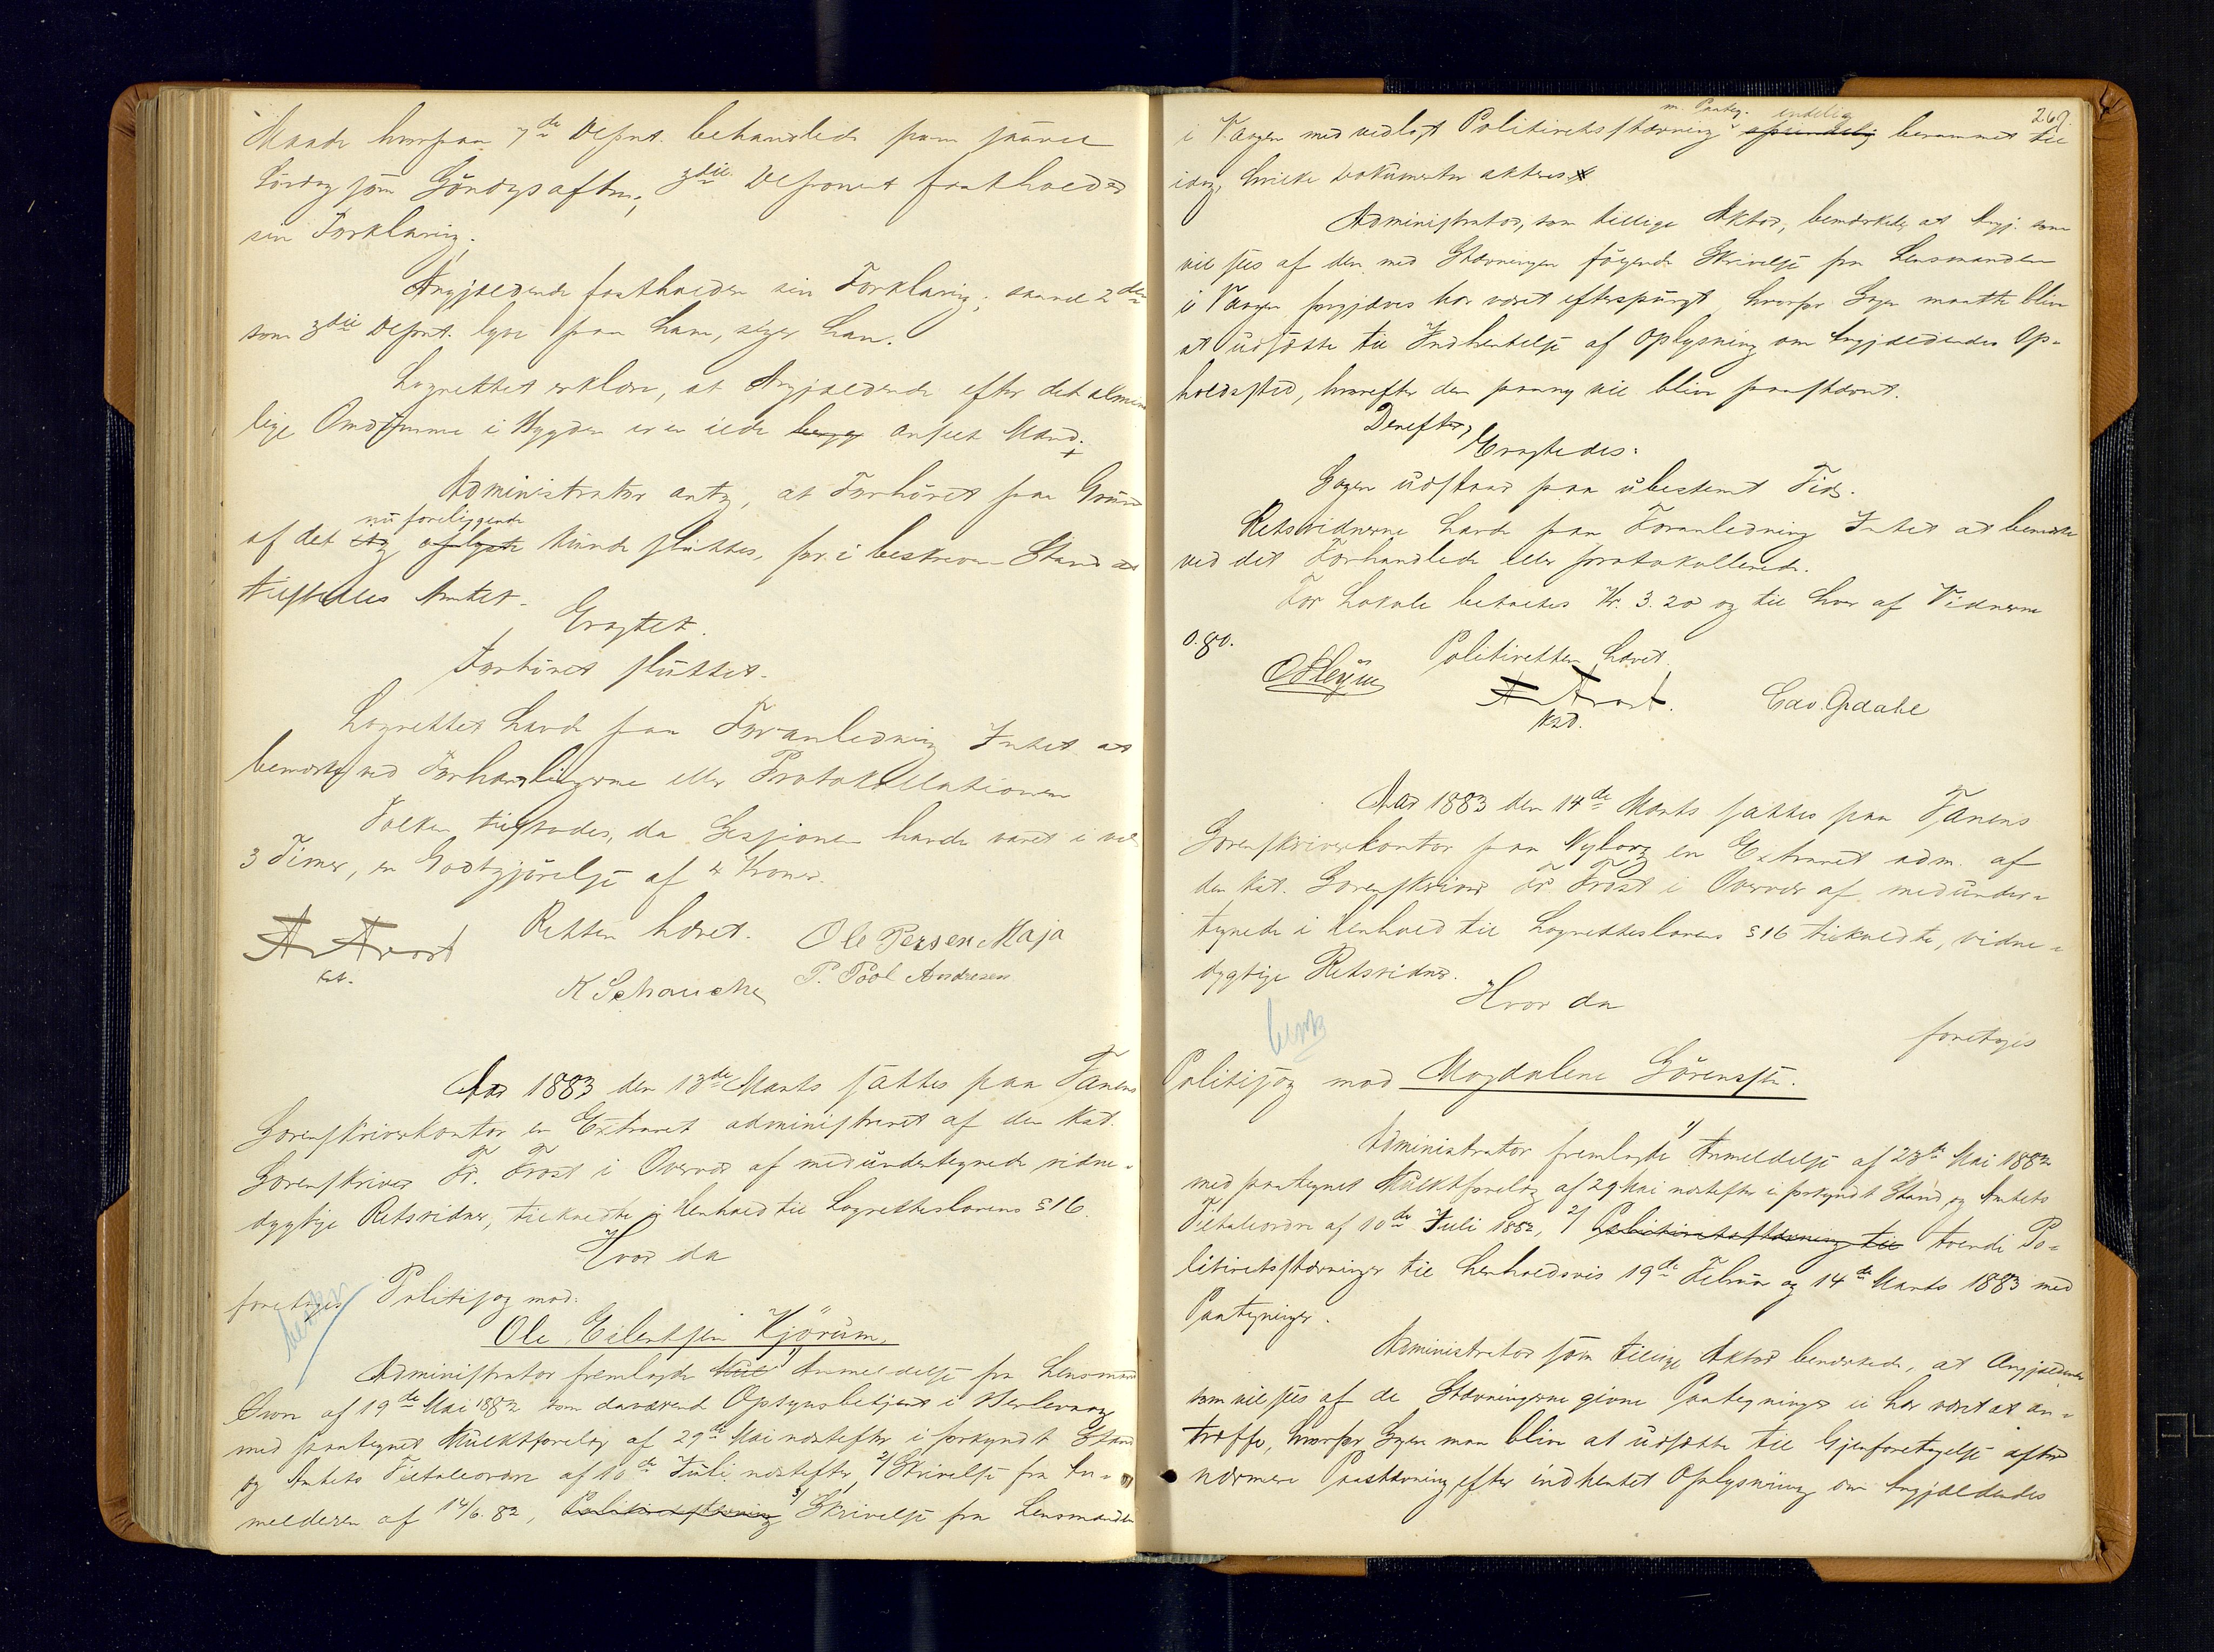 Maade hvorpaa 7de Depnt. behandlede som saavel
Lördag som Söndagsaften; 3die Deponent fastholdes
sin Forklaring.
Angjældende fastholder sin Forklaring; saavel 2den
som 3die Depnt. lyve paa ham, siger han.
Lagrettet erklærer, at Angjældende efter det almin
lige Omdømme i Bygden er en ilde anseet Mand.
Administrator antog, at Forhöret paa Grund
nu foreliggende
af det oplyste kunde sluttes, for i beskreven Stand at
tilstilles Amtet.
Eragtet.
Forhöret sluttet.
Lagrettet havde paa Foranledning Intet at
bemærke ved Forhandlingerne eller Protokollationen
Tolken tilstodes, da Sessionen havde varet i
3 Timer, en Godtgjörelse af Kroner.
Retten hævet.
Fr Frost
kst.
Ole Persen Maja
K Schanche
P. Pool Andresen
Aar 1883 den 13de Marts sattes paa Tanens
Sorenskriverkontor en Extraret administreret af den kst.
Sorenskriver Fr. Frost i Overvær af medundertegnede vidne-
dygtige Retsvidner, tilkaldte i Henhold til Lagretteslovens § 16.
Hvor da
foretoges Politisag mod:
Ole Eilertsen Kjörum.
Administrator fremlagde 1/ Anmeldelse fra Lensmand
af 19de Mai 1882 som daværende Opsynsbetjent i Berlevaag
med paategnet Mulktforelæg af 29de Mai næstefter i forkyndt Stand
og Amtets Tiltaleordre af 10de Juli næstefter, 2/ Skrivelse fra An-
melderen af 14/6. 82, Politiretsstævning 3/ Skrivelse fra Lensmanden
267.
m. Paateg. endelig
i Vaagen med vedlagt Politiretsstævning berammet til
idag, hvilke Dokumenter akteres.
Administrator, som tillige Aktor, bemærkede, at Angj. som
vil sees af den med Stævningen fölgende Skrivelse fra Lensmanden
i Vaagen forgjæves har været efterspurgt, hvorfor Sagen maatte blive
at udsætte til Indhentelse af Oplysning om Angjældendes Op-
holdssted, hvorefter den paany vil blive paastævnt.
Derefter
Eragtedes:
Sagen udstaar paa ubestemt Tid.
Retsvidnerne havde paa Foranledning Intet at bemærke
ved det Forhandlede eller protokollerede.
For Lokale betaltes Kr. 3.20 og til hver af Vidnerne
0.80.
Politiretten hævet.
Fr Frost.
kst.
Edv. Opdahl
Aar 1883 den 14de Marts sattes paa Tanens
Sorenskriverkontor paa Nyborg en Extraret adm. af
den kst. Sorenskriver Fr Frost i Overvær af medunder-
tegnede i Henhold til Lagretteslovens § 16 tilkaldte, vidne-
dygtige Retsvidner.
Hvor da
foretoges
Politisag mod Magdalene Sörensen.
Administrator fremlagde 1/ Anmeldelse af 23de Mai 1882
med paategnet Mulktforelæg af 29 Mai næstefter i forkyndt Stand og Amtets
Tiltaleordre af 10de Juli 1882, 2/ Politiretsstævning til tvende Po-
litiretsstævninger til henholdsvis 19de Februar og 14de Marts 1883 med
Paategninger.
Administrator som tillige Aktor bemærkede, at Angjældende
som vil sees af de Stævningerne givne Paategninger ei har været at an-
træffe, hvorfor Sagen maa blive at udsætte til Gjenforetagelse efter
nærmere Paastævning efter indhentet Oplysning om Angjældendes